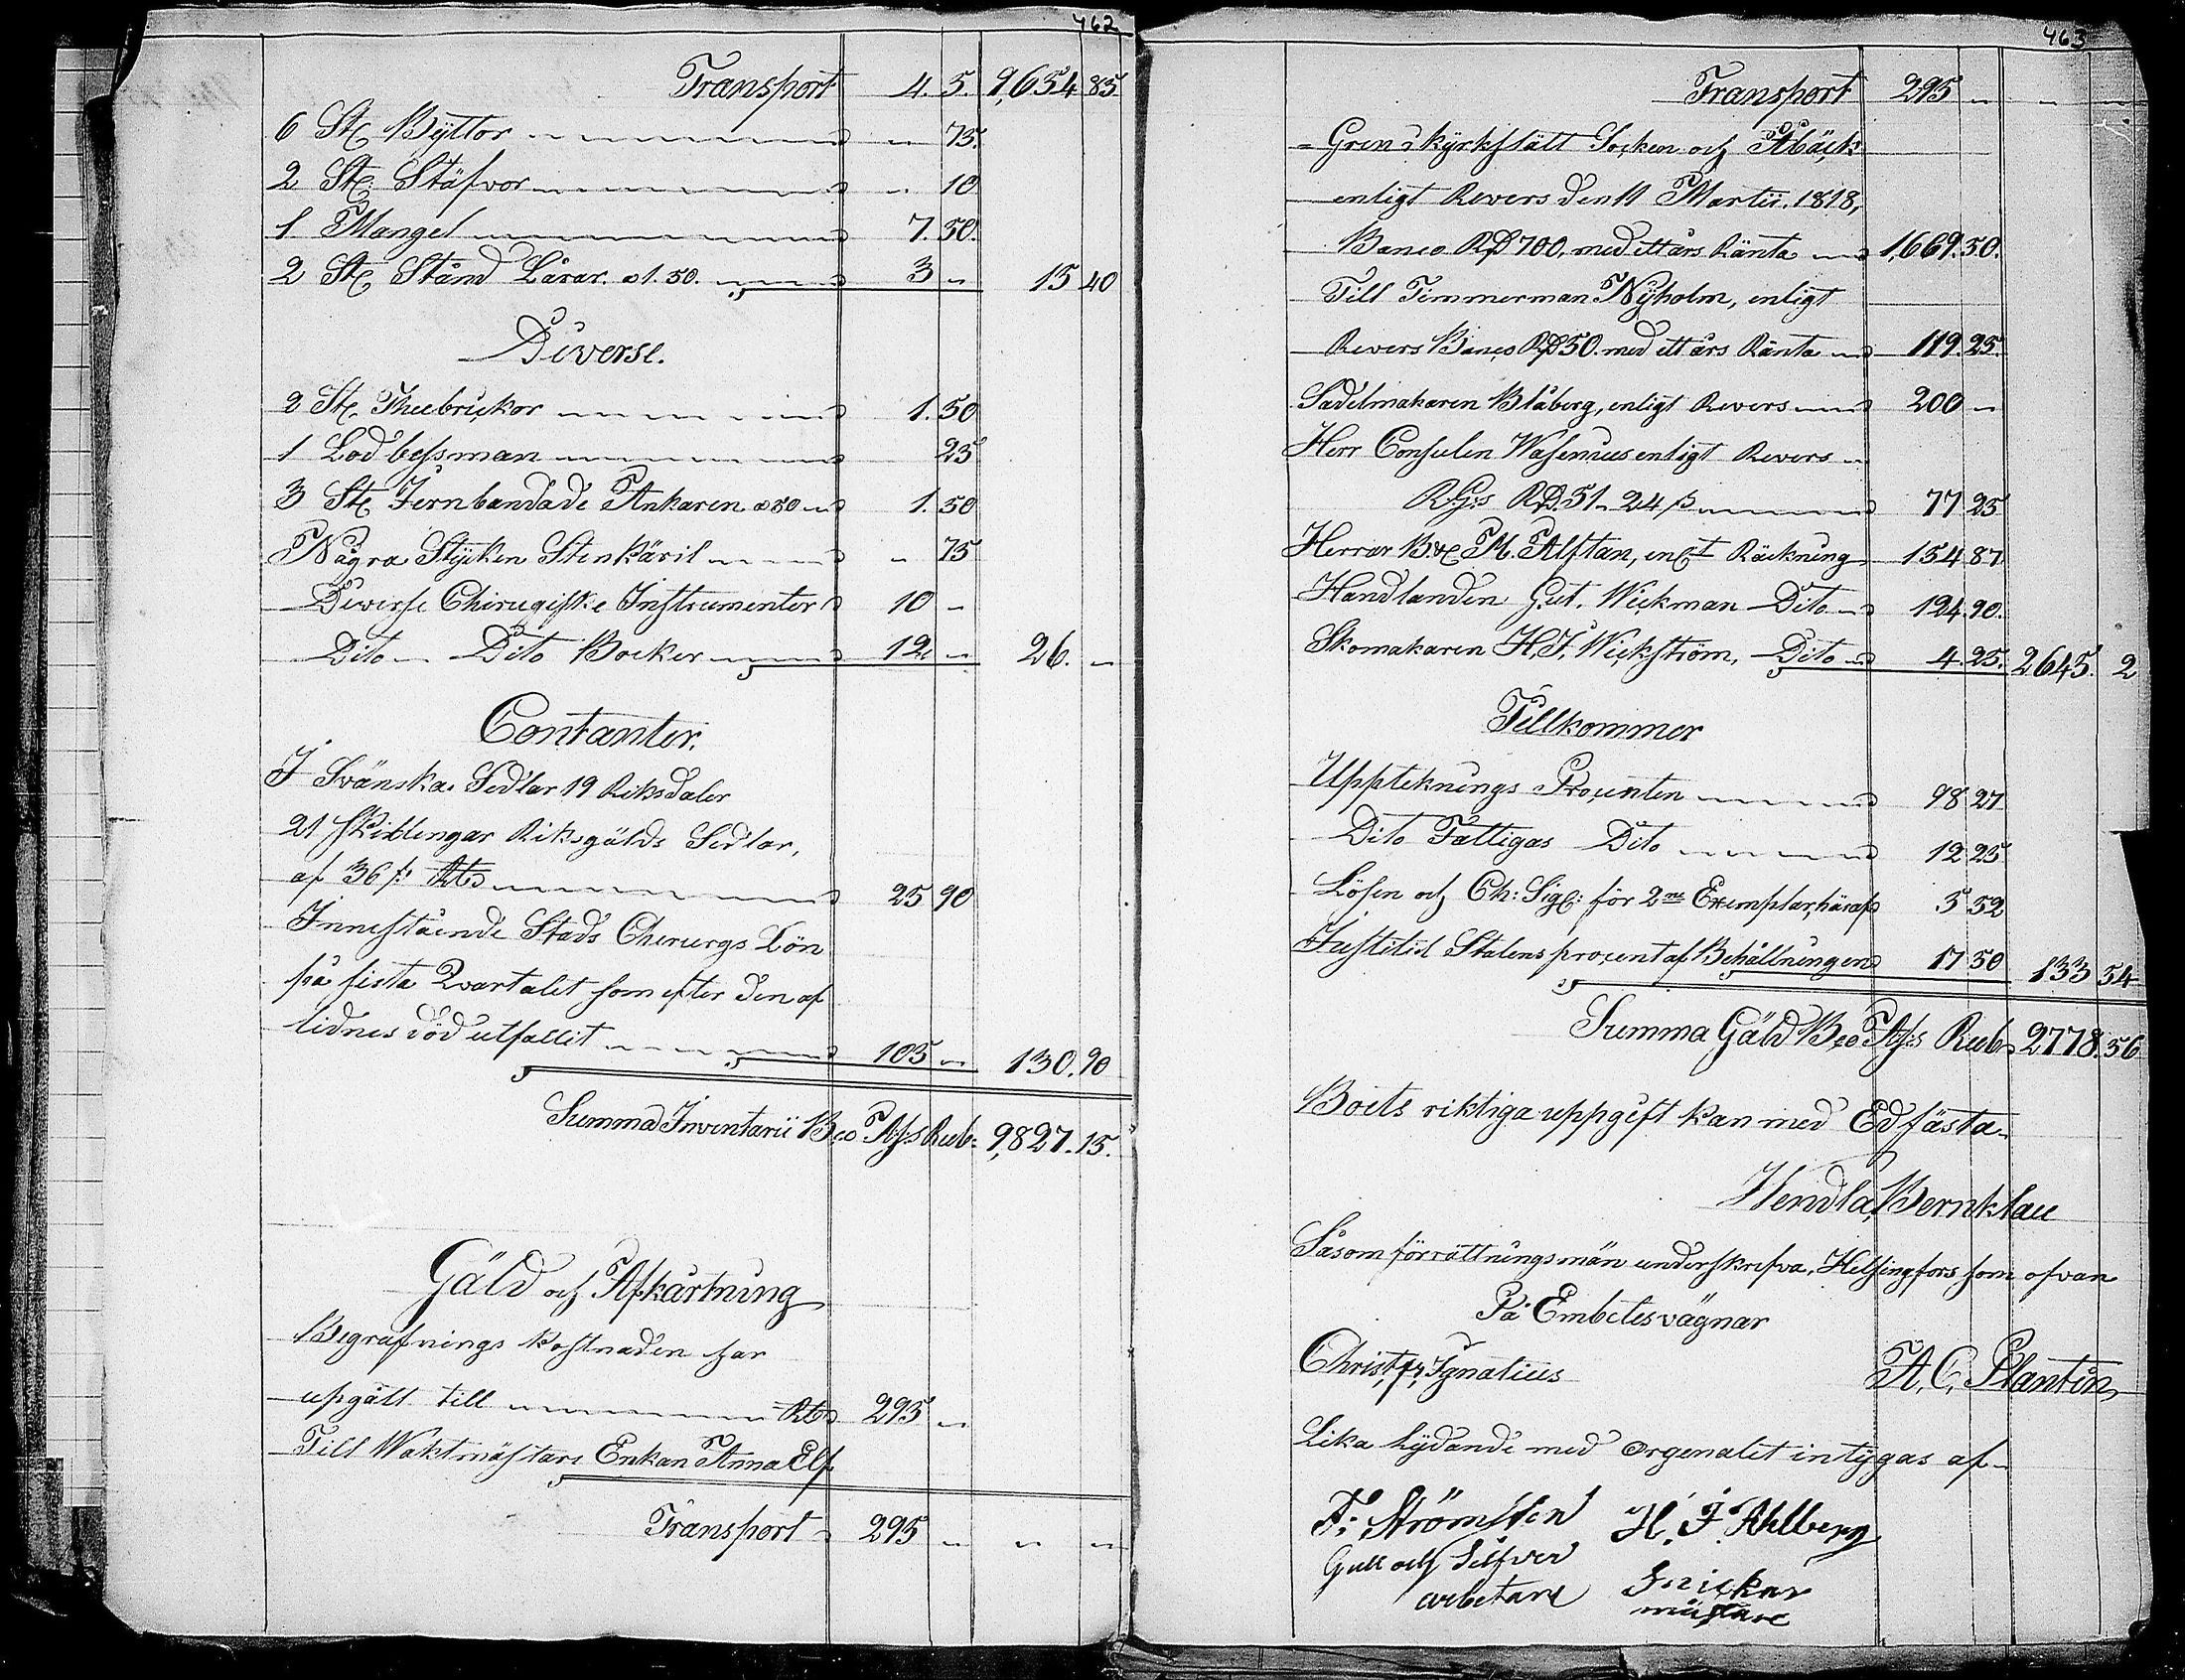 462
Transport 4. 5. 9,654 85
6 St Byttor 75.
2 St Stäfvor 10
1 Mangel 7. 50.
2 St Stånd Lårar. a 1.50. 3 15 40
Diverse.
2 St. Theebrickor 1. 50
1 Lod bessman 25
3 St Jernbandade Ankaren a 50 1. 50
Några Stycken Stenkäril 75
Diverse Chirugiske Instrumenter 10
Dito Dito Böcker 12 26.
Contanter.
I Svänska Sedlar 19 Riksdaler
21 Skillingar Riksgälds Sedlar,
af 36 ß
25 90
Innestående Stads Chirurgs Lön
på sista Qvartalet som efter den af
lidnes död utfallit 105 130. 90
Summa Inventarii Bco Ass Rub: 9,827. 15.
Gäld och Afkårtning
Begrafnings kostnaden har
upgått till Rbs 295
Till Waktmästare Enkan Anna Elf
Transport 295
463
Transport 295
Gren i Kyrkslätt Socken och Åbäck
enligt Revers den 11 Martii. 1818,
Banco RD 700, med ett års Ränta 1,669. 50.
Till Timmerman Nyholm, enligt
Revers Banco RD 50. med ett års Ränta 119. 25.
Sadelmakaren Blåberg, enligt Revers 200
Herr Consulen Wasenius enligt Revers
RGs RD. 51 - 24 ß 77 25
Herrar B & M. Alftan, enlt Räckning 154 87
Handlanden Gut. Wickman Dito 124. 90.
Skomakaren H. J. Wickström, Dito 4. 25. 2645. 2
Tillkommer
Uppteknings Procenten 98 27
Dito Fattigas Dito 12 25
Lösen och Ch: Sig: för 2ne Exemplar, häraf 5 52
Justitiæ Stalens procent af Behållningen 17 50 133 54
Summa Gäld Bco Ass Rub 2778. 56
Boets riktiga uppgift kan med Ed fästa
Hendla Bernklau
Såsom förrättningsmän underskrifva, Helsingfors som ofvan
På Embetesvägnar
Christ, fr, Ignatius A, C, Plantin
Lika lydande med orgenalet intygas af
F: Strömsten H. J Ahlberg
Gull och Silfver Snickar
arbetare mästare